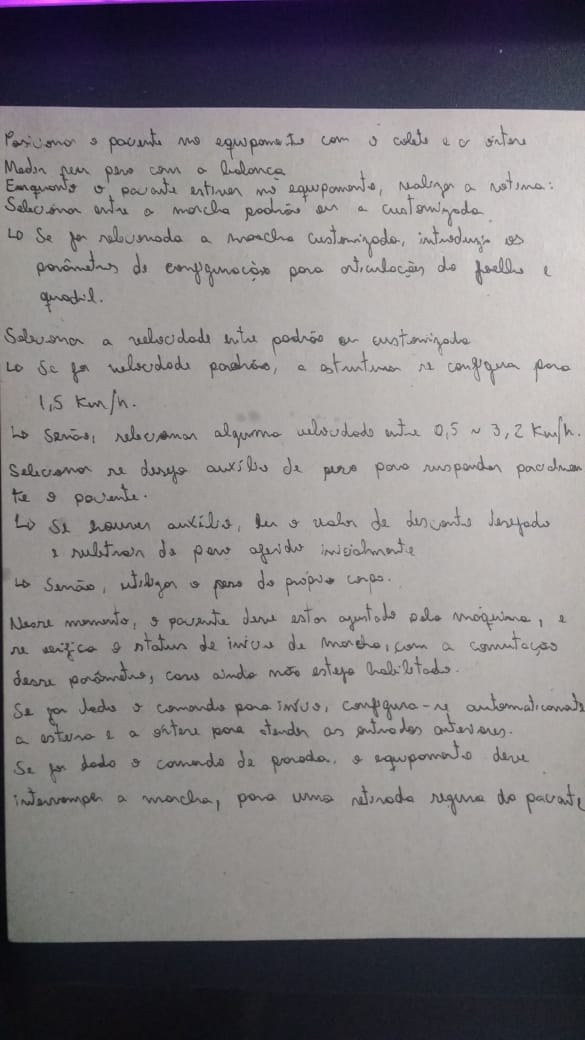 Posicionar o paciente no equipamento com o colete e a órtese
Medir seu peso com a balança
Enquanto o paciente estiver no equipamento, realizar a rotina:
Selecionar entre a marcha padrão ou a customizada
↳ Se for selecionada a marcha customizada, introduzir os
parâmetros de configuração para articulações do joelho e
quadril.
Selecionar a velocidade entre padrão ou customizada
↳ Se for velocidade padrão, a estrutura se configura para
1,5 Km/h.
↳ Senão, selecionar alguma velocidade entre 0,5 ~ 3,2 Km/h.
Selecionar se deseja auxílio de peso para suspender parcialmen
te o paciente.
↳ Se houver auxílio, ler o valor de desconto desejado
e subtrair do peso aferido inicialmente
↳ Senão, utilizar o peso do próprio corpo.
Nesse momento, o paciente deve estar ajustado pela máquina, e
se verifica o status de início de marcha, com a comutação
desse parâmetro, caso ainda não esteja habilitado.
Se for dado o comando para início, configura-se automaticamente
a esteira e a órtese para atender as entradas anteriores.
Se for dado o comando de parada, o equipamento deve
interromper a marcha, para uma retirada segura do paciente